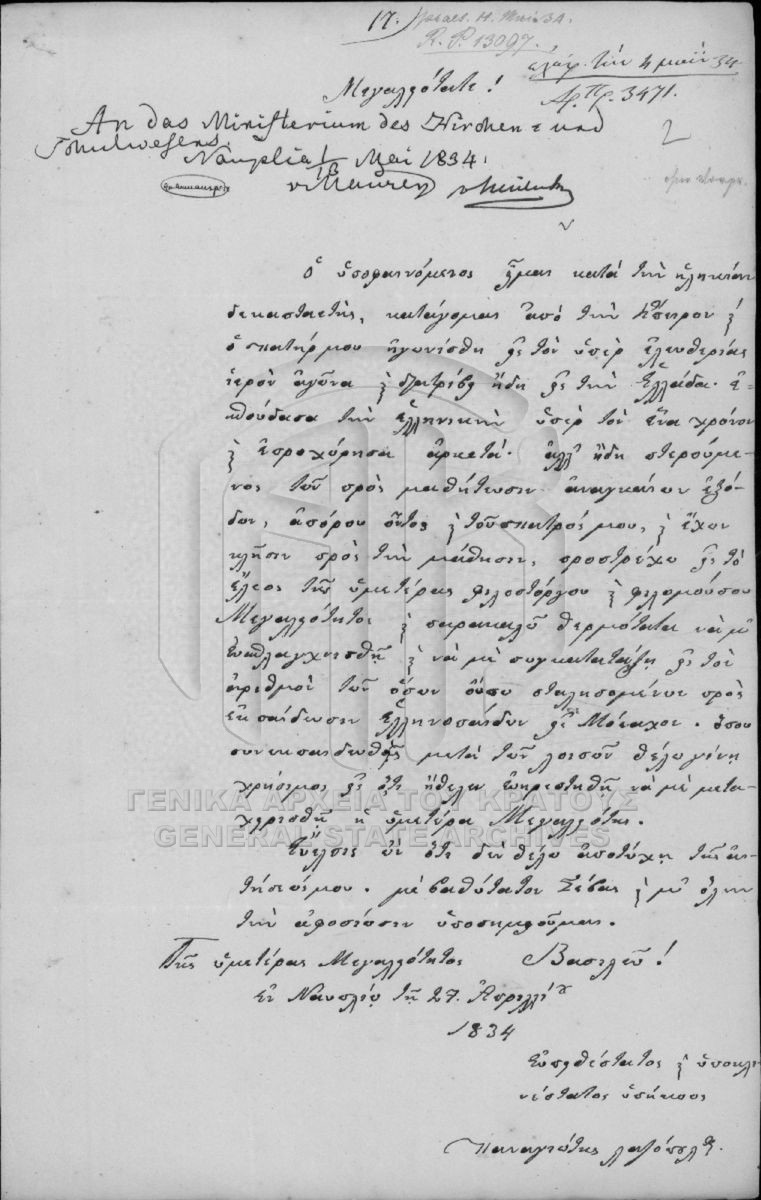 17. praes. 4. Mai 34.
R. P. 13097.
ἐλήφ. τὴν 4 μαΐου 34
Ἀρ. Πρ. 3471.
Μεγαλειότατε!
2
An das Ministerium des Kirchen- und
Schulwesens
Nauplia Mai 1834.
v Maurer
Ὁ ὑποφαινόμενος εἶμαι κατὰ τὴν ἡλικίαν
δεκαπταετὴς, κατάγομαι ἀπὸ τὴν Ἤπειρον καὶ
ὁ πατήρ μου ἠγωνίσθη εἰς τὸν ὑπὲρ ἐλευθερίας
ἱερὸν ἀγῶνα καὶ διατρίβει ἤδη εἰς τὴν Ἑλλάδα. ἐ-
σπούδασα τὴν ἑλληνικὴν ὑπὲρ τὸν ἕνα χρόνον
καὶ ἐπροχώρησα ἀρκετά. ἀλλ' ἤδη στερούμε-
νος τῶν πρὸς μαθήτευσιν ἀναγκαίων ἐξό-
δων, ἀπόρου ὄντος καὶ τοῦ πατρός μου, καὶ ἔχων
κλῆσιν πρὸς τὴν μάθησιν, προστρέχω εἰς τὸ
ἔλεος τῆς ὑμετέρας φιλοστόργου καὶ φιλομούσου
Μεγαλειότητος καὶ παρακαλῶ θερμότατα νὰ μ'
εὐσπλαγχνισθῇ καὶ νὰ μὲ συγκατατάξῃ εἰς τὸν
ἀριθμὸν τῶν ὅσων οὔπω σταλησομένων πρὸς
ἐκπαίδευσιν Ἑλληνοπαίδων εἰς Μόναχον. ὅπου
συνεκπαιδευθεὶς μετὰ τῶν λοιπῶν θέλω γίνῃ
χρήσιμος εἰς ὅτι ἤθελεν εὐαρεστηθῆ νὰ μὲ μετα-
χειρισθῇ ἡ ὑμετέρα Μεγαλειότης.
Εὔελπις ὢν ὅτι δὲν θέλω ἀποτύχῃ τῆς αἰ-
τήσεώς μου. μὲ βαθύτατον σέβας καὶ μ' ὅλην
τὴν ἀφοσίωσιν ὑποσημειοῦμαι.
Τῆς ὑμετέρας Μεγαλειότητος Βασιλεῦ!
Ἐν Ναυπλίῳ τῇ 27. Ἀπριλλίου
1834
Εὐπειθέστατος καὶ ὑποκλι-
νέστατος ὑπήκοος
Παναγιώτης
ΓΕΝΙΚΑ ΑΡΧΕΙΑ ΤΟΥ ΚΡΑΤΟΥΣ
GENERAL STATE ARCHIVES